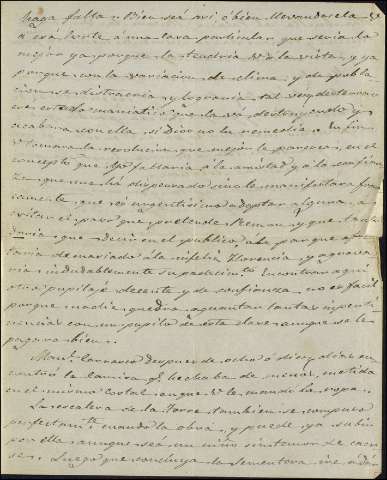 haga falta. Bien sea asi ó bien llevandosela V.
á esa corte á una casa particular que seria lo
mejor ya porque la tendria V. á la vista, y ya
porque con la variacion de clima, y de pobla
cion se distraeria, y lograria tal vez desterrar
ese estado maniatico que la va destruyendo y
acabara con ella si Dios no lo remedia. En fin
V. tomara la resolucion que mejor le parezca, en el
concepto que yo faltaria á la amistad y á la confian
za que me há dispensado sino le manifestara fran
camente, que es urgentisimo adoptar alguna, á
evitar el paso que pretende Ramon, y que tanto
daria que decir en el publico
demasiado á la infeliz Florencia, y agrava
ria indudablemente su padecimto. Encontrar aqui
otro pupilaje decente y de confianza no es facil
porque nadie querra aguantar tantas imperti
nencias con un pupilo de esta clase aunque se le
pagara bien.
Manl. Carrasco despues de ocho ó diez dias en
contró la camisa qe. hechaba de menos, metida
en el mismo costal en que V. le mandó la ropa.
La escalera de la Torre tambien se compuso
perfectamte. cuando la obra, y puede ya subir
por ella aunque sea un niño sin temor de caer
se. Luego que concluya la sementera iré á dar